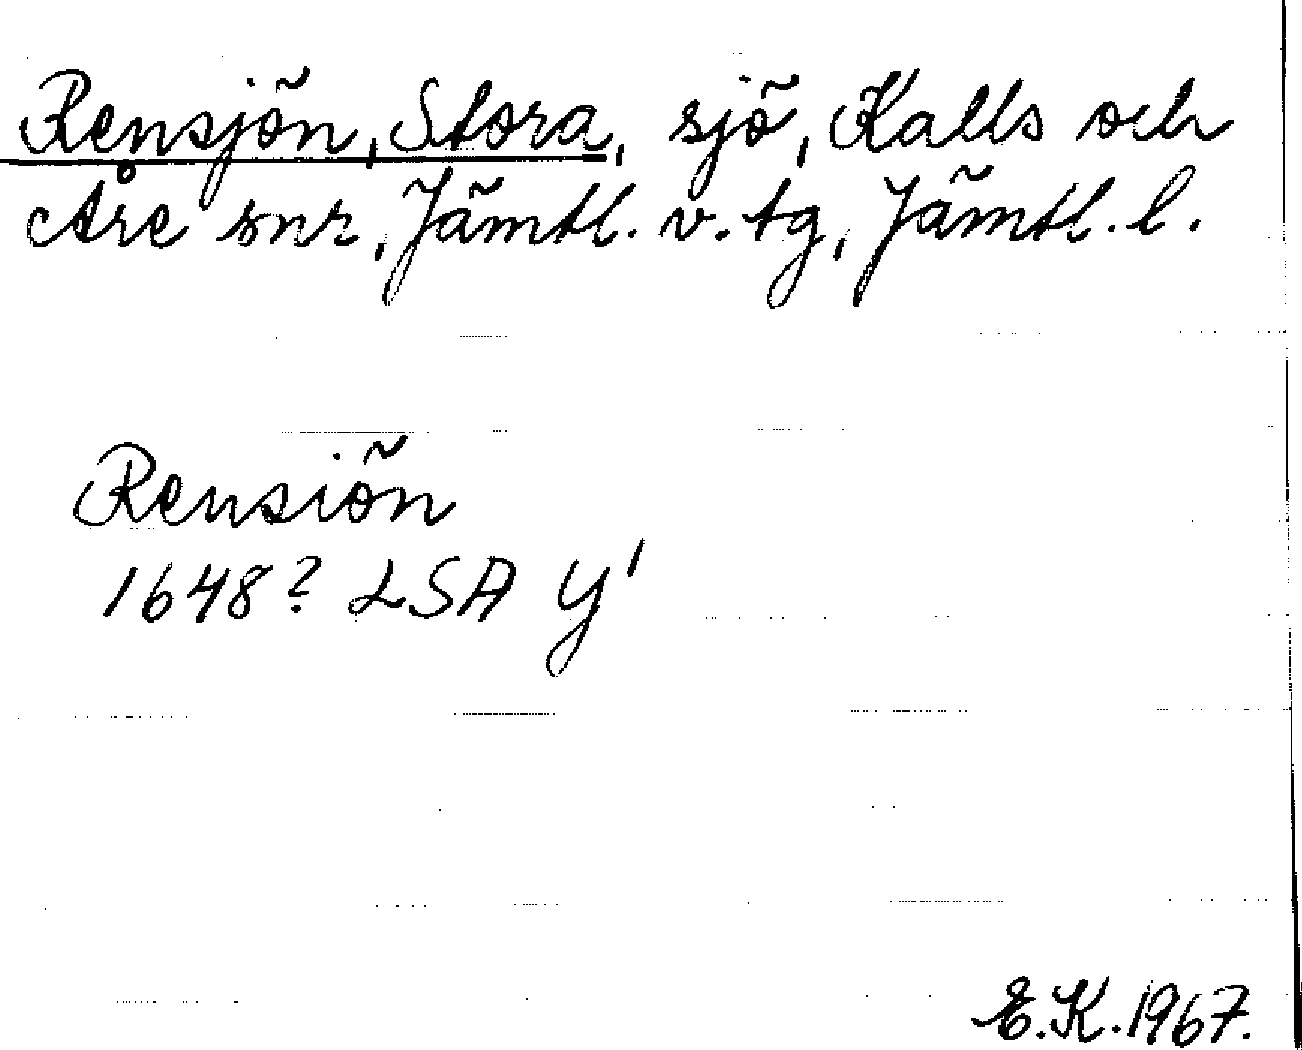 Rensjön, Stora, sjö, Kalls och
Åre snr, Jämtl. v. tg, Jämtl. l.
Rensiön
1648? LSA Y'
E.K. 1967.